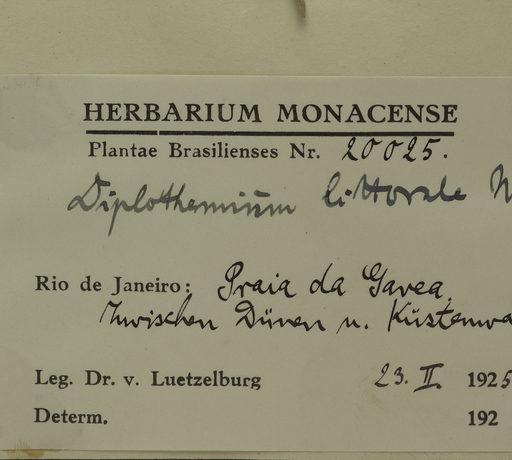 HERBARIUM MONACENSE
Plantae Brasilienses Nr. 20025.
Diplothemium littorale
Rio de Janeiro: Praia da Gavea,
Zwischen Dünen u.
Leg. Dr. v. Luetzelburg 23. II. 1925
Determ. 192